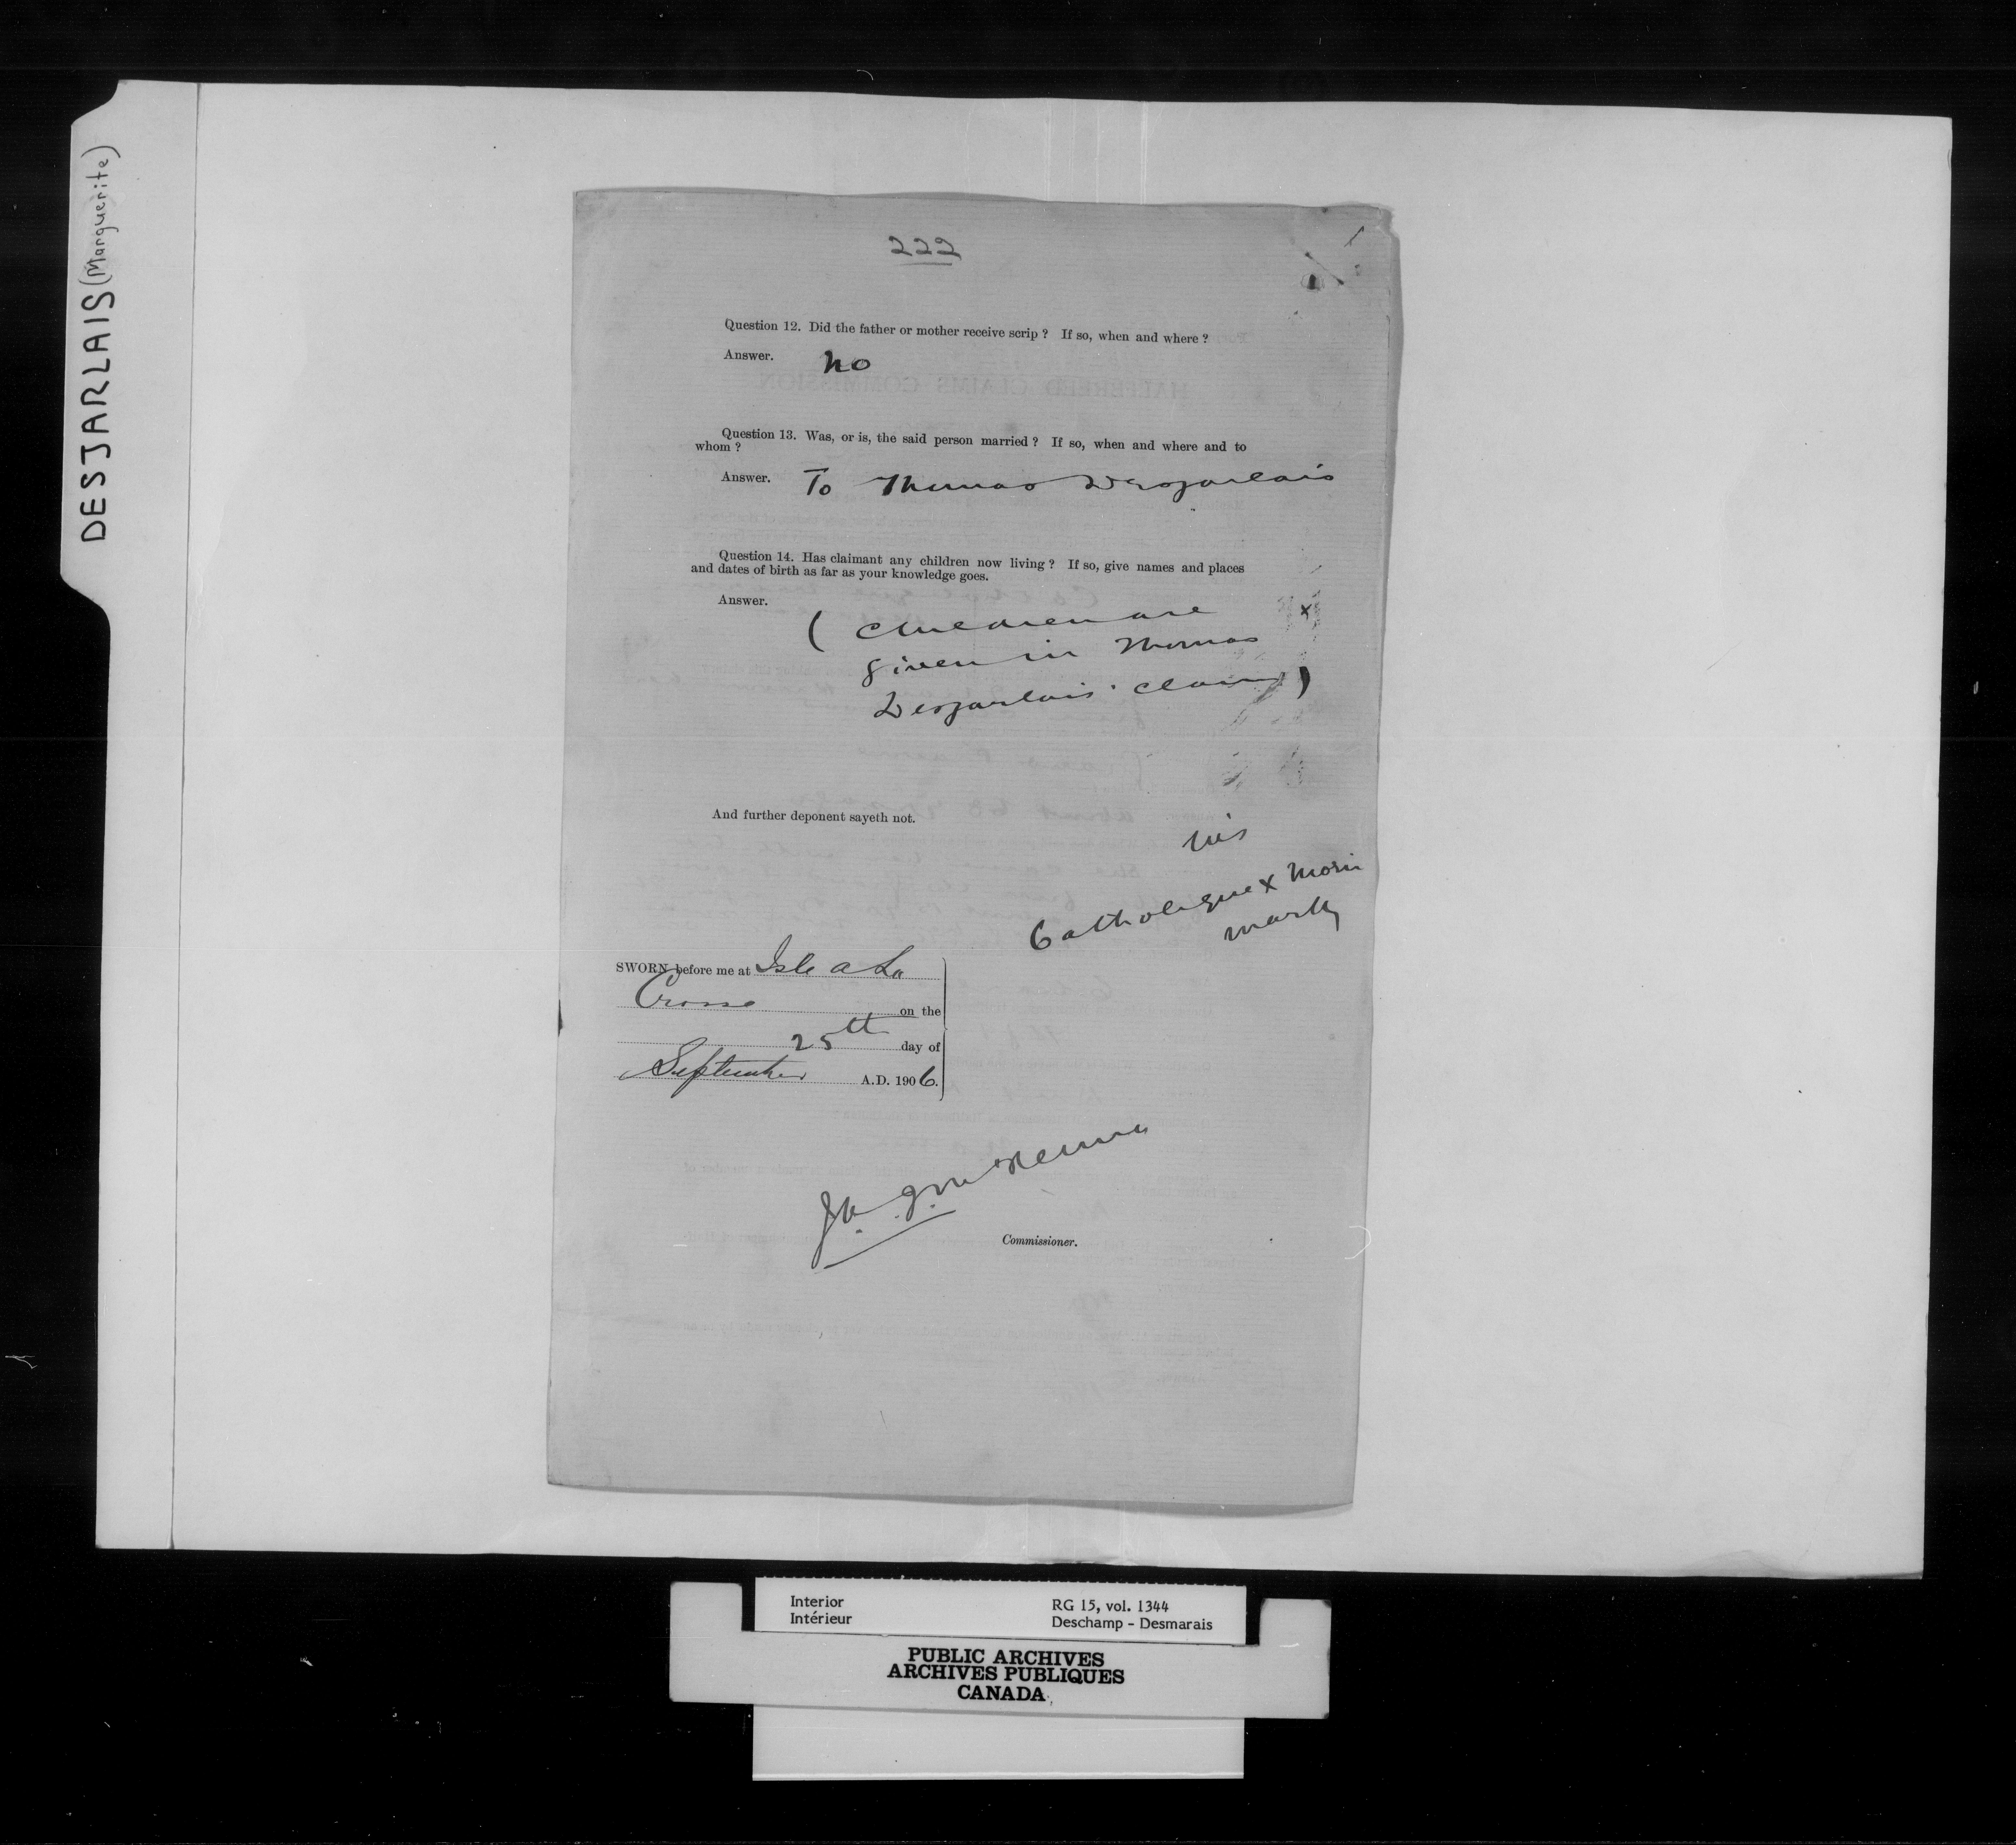 DESJARLAIS (Marguerite)
222
Question 12. Did the father or mother receive scrip ? If so, when and where ?
Answer. No
Question 13. Was, or is, the said person married ? If so, when and where and to
whom ?
Answer. To Thomas Desjarlais
Question 14. Has claimant any children now living ? If so, give names and places
and dates of birth as far as your knowledge goes.
Answer.
( Children are x
given in Thomas
Desjarlais' claim )
And further deponent sayeth not.
his
Catholique x Morin
mark
SWORN before me at Isle a La
Crosse on the
25th day of
September A.D. 1906.
Commissioner.
Interior
Intérieur
RG 15, vol. 1344
Deschamp - Desmarais
PUBLIC ARCHIVES
ARCHIVES PUBLIQUES
CANADA